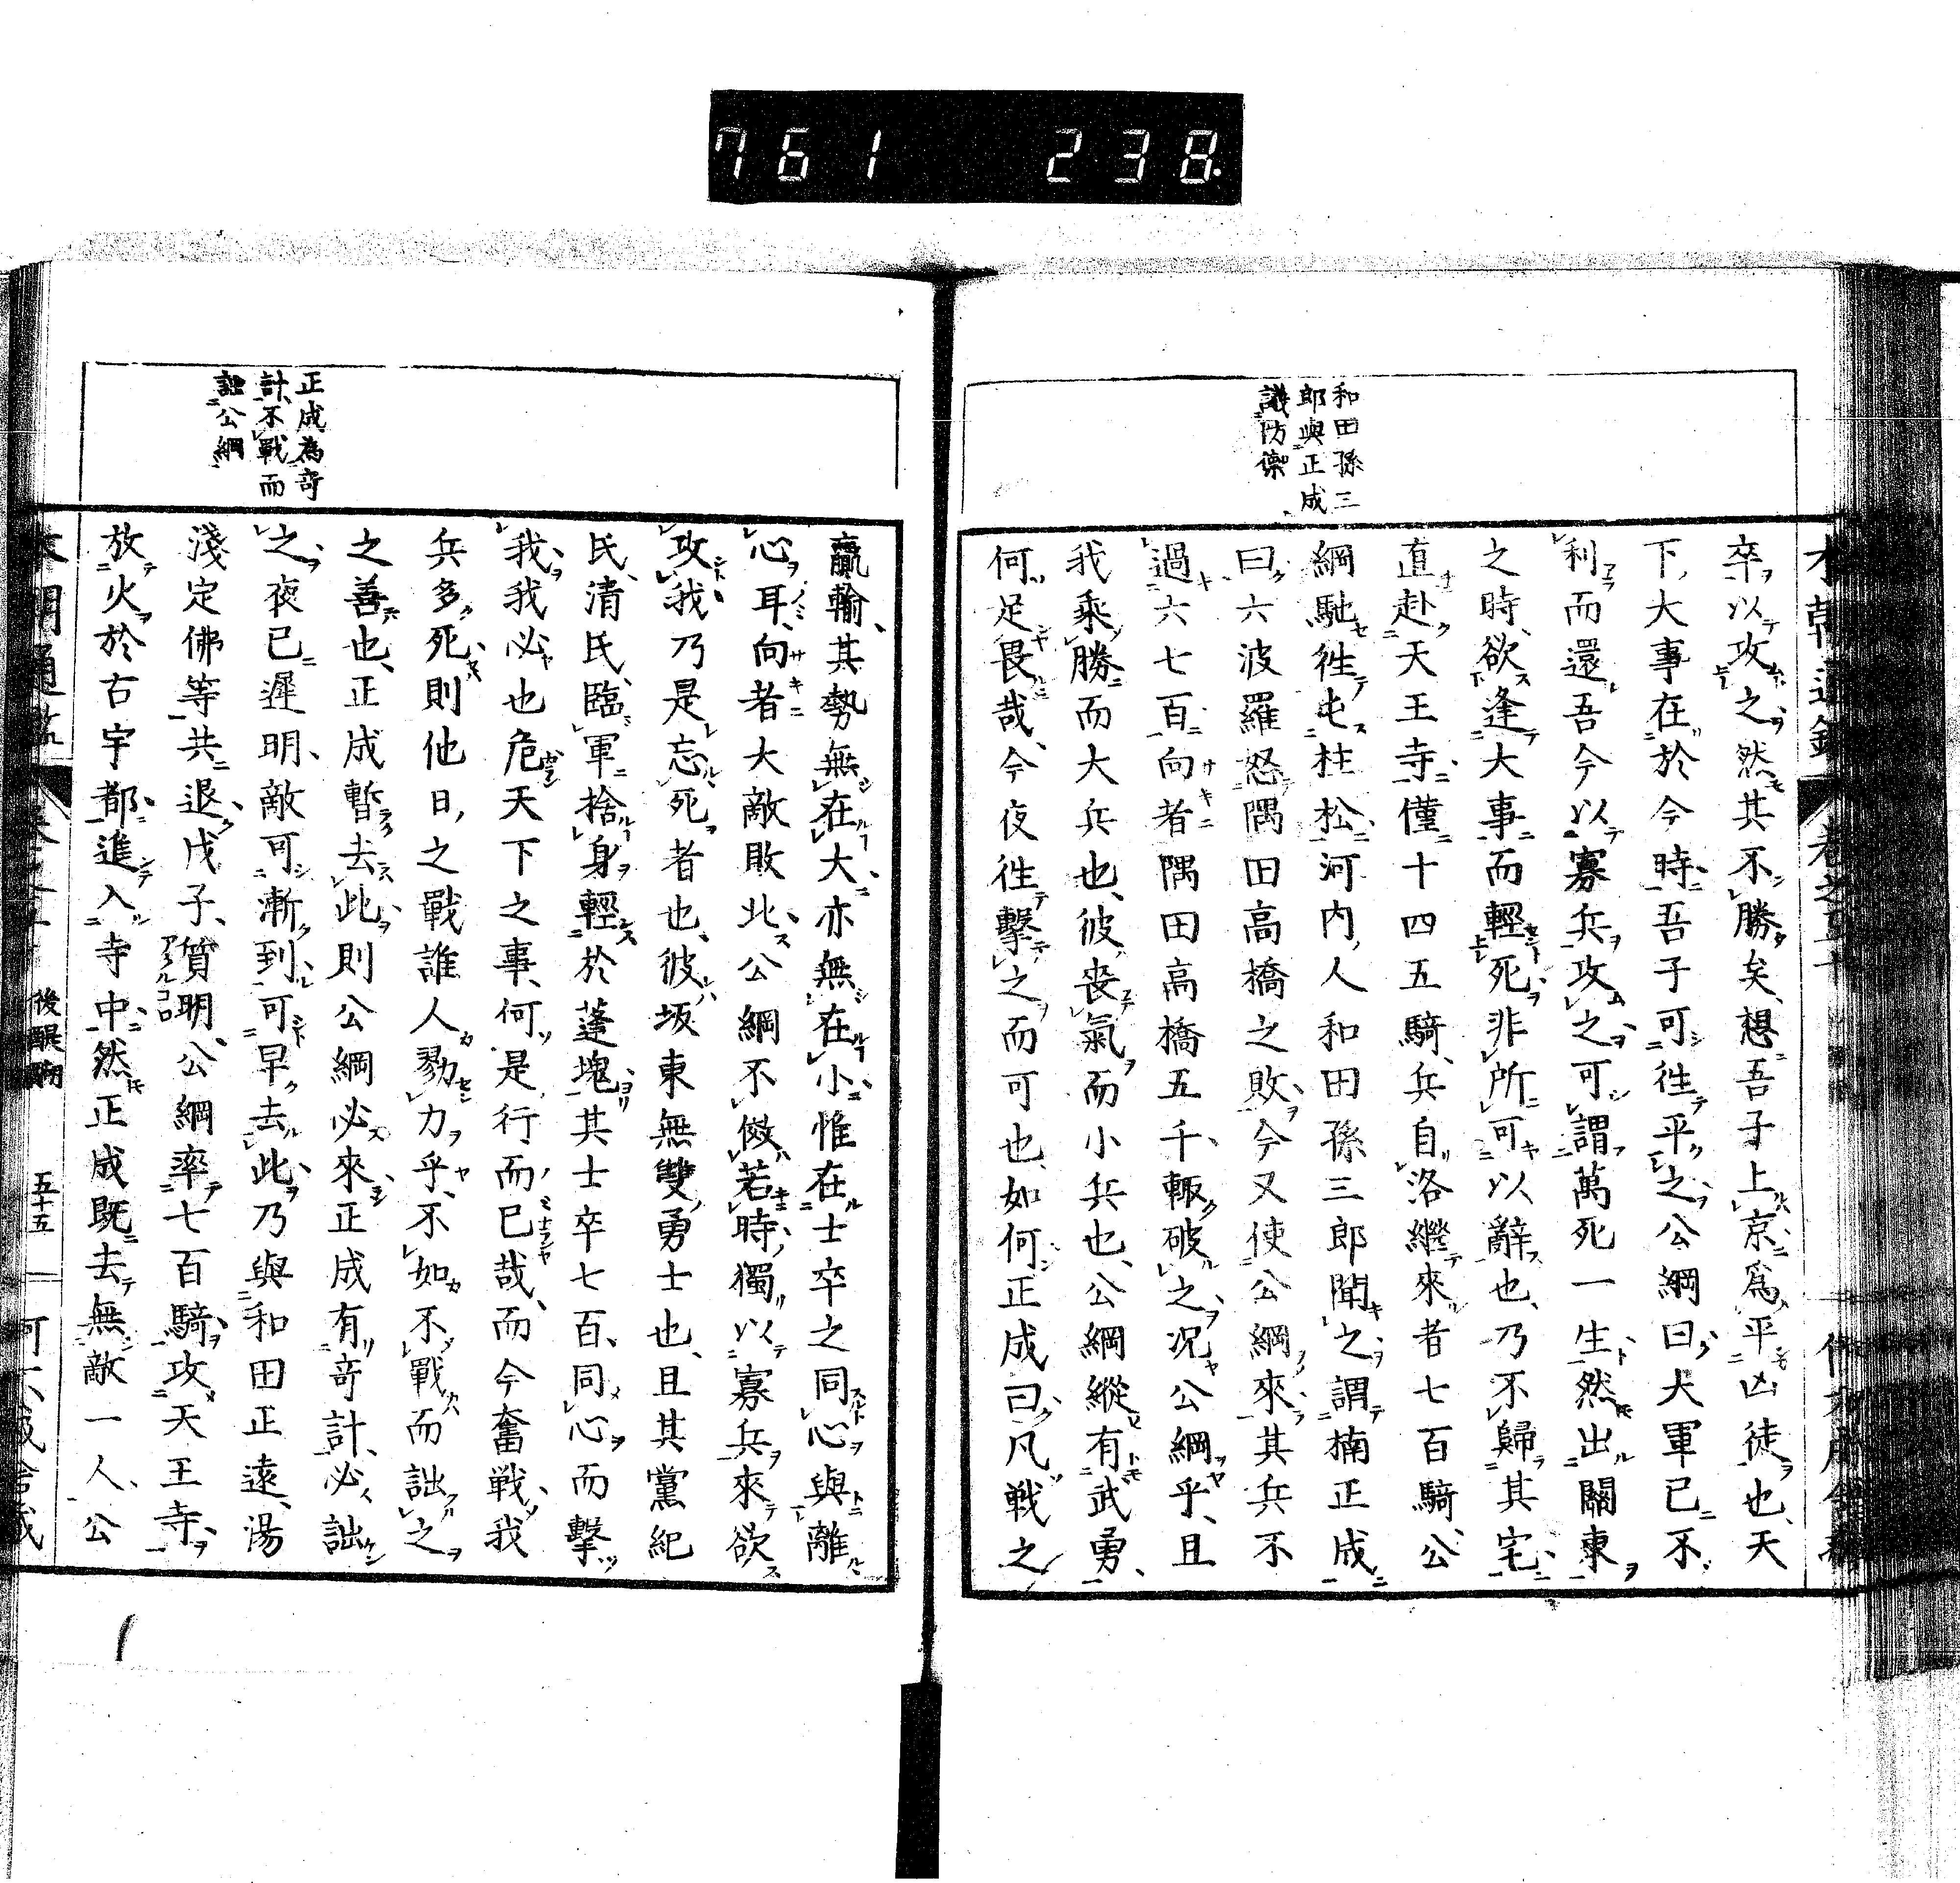 761 238.
和田孫三
郎與正成
議防禦
卒以攻之然其不勝矣想吾子上京爲平凶徒也天
下大事在於今時吾子可徃平之公綱曰大軍已不
利而還吾今以寡兵攻之可謂萬死一生然出關東
之時欲逢大事而輕死非所可以辭也乃不歸其宅
直赴天王寺僅十四五騎兵自洛繼來者七百騎公
綱馳徃屯柱松河内人和田孫三郎聞之謂楠正成
曰六波羅怒隅田高橋之敗今又使公綱來其兵不
過六七百向者隅田高橋五千輙破之况公綱乎且
我乘勝而大兵也彼喪氣而小兵也公綱縱有武勇
何足畏哉今夜徃擊之而可也如何正成曰凡戰之
正成為奇
計不戰而
詘公綱
贏輸其勢無在大亦無在小惟在士卒之同心與離
心耳向者大敵敗北公綱不傚若時獨以寡兵來欲
攻我乃是忘死者也彼坂東無雙勇士也且其黨紀
氏清氏臨軍捨身輕於蓬塊其士卒七百同心而擊
我我必也危天下之事何是行而已哉而今奮戰我
兵多死則他日之戰誰人勠力乎不如不戰而詘之
之善也正成暫去此則公綱必來正成有奇計必詘
之夜已遲明敵可漸到可早去此乃與和田正遠湯
淺定佛等共退戊子質明公綱率七百騎攻天王寺
放火於古宇都進入寺中然正成既去無敵一人公
後醍醐
五十五